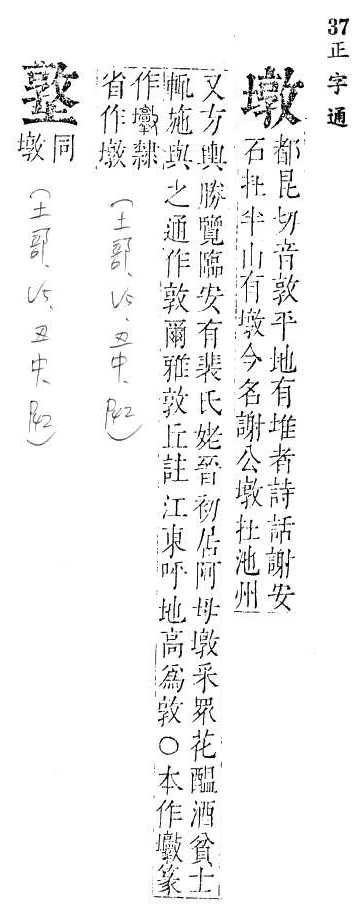 37正字通
墩
都昆切音敦平地有堆者詩話謝安
石在半山有墩今名謝公墩在池州
又方輿勝覽臨安有裴氏姥晉初居阿母墩采眾花醞酒貧士
輒施與之通作敦爾雅敦丘註江東呼地高爲敦○本作𡼖篆
作𡼖隸
省作墩
(土部、V5、丑中、P42)
墪
同
墩
(土部、V5、丑中、P42)